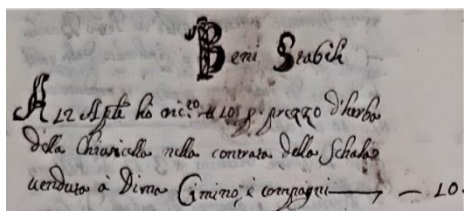 Beni Stabili
A 12 Aple ho ric.to # 10 p. prezzo d'herba
della Chiusicella nella contrata della Schala
venduta à Dima Cimino, è compagni — — 10.